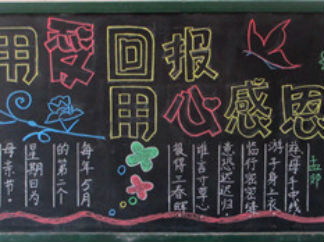 用爱回报
用心感恩
孟郊
慈母手中线
游子身上衣
临行密密缝
意恐迟迟归
谁言寸草心
报得三春晖
每年5月
的第二个
星期日为
母亲节。